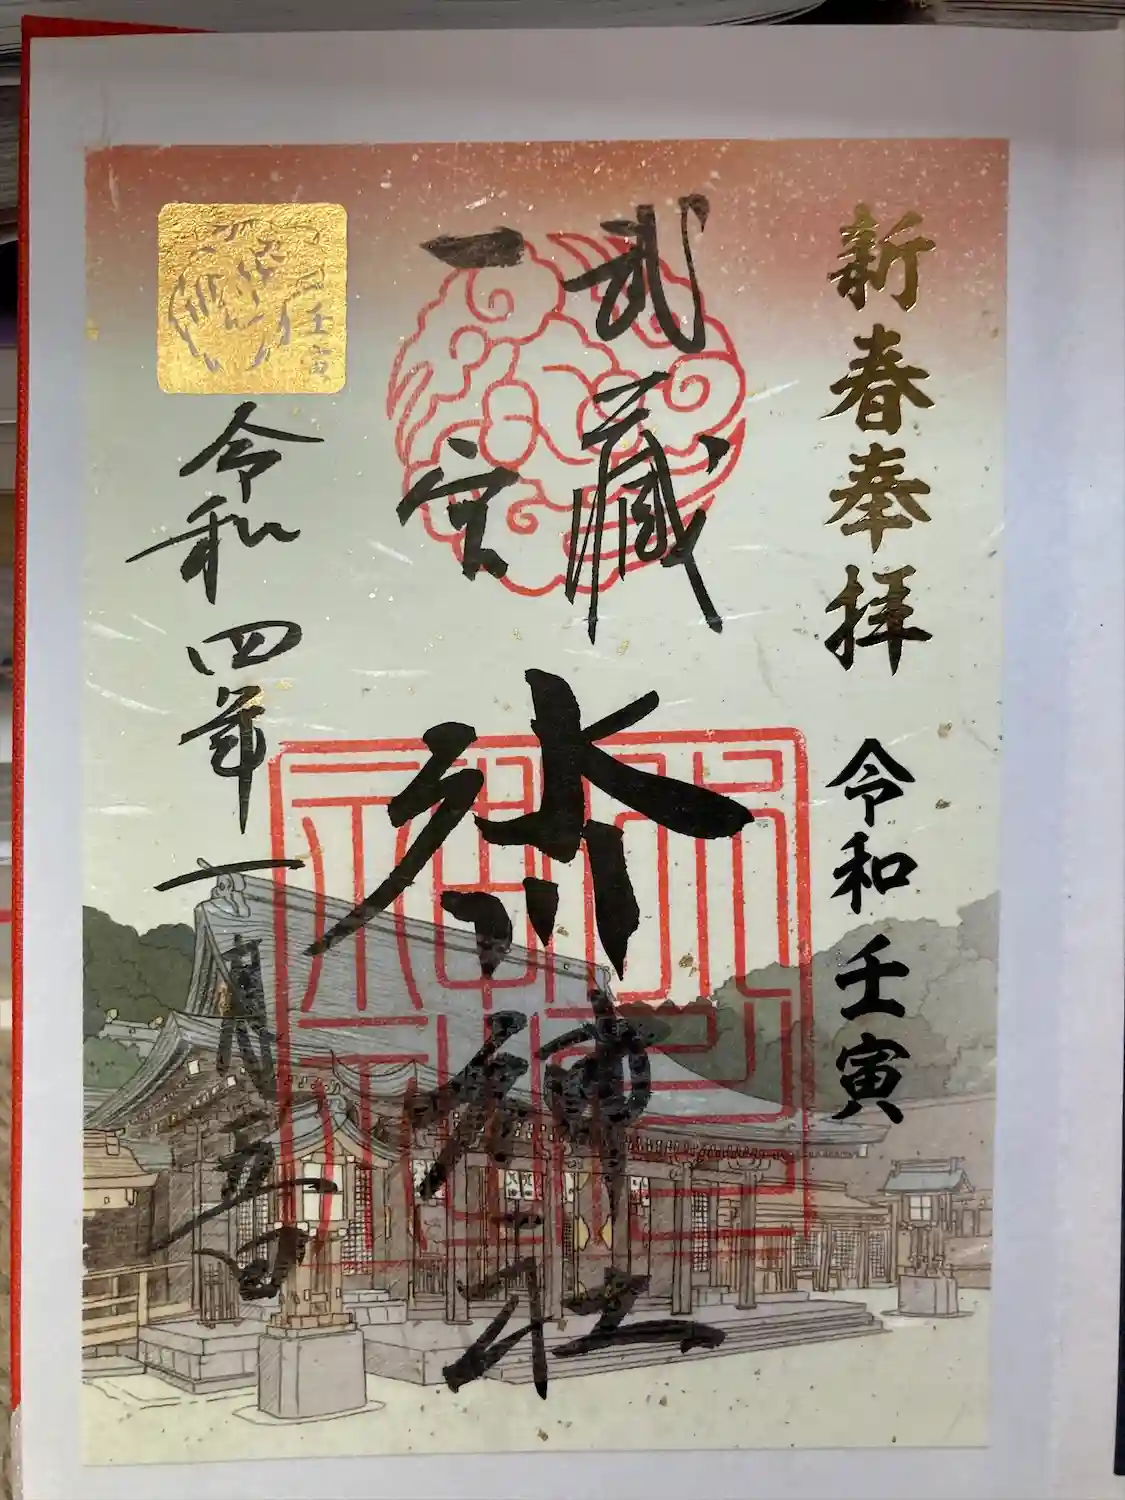 新春奉拝
令和壬寅
武蔵
一宮
氷川神社
令和四年一月五日
壬寅